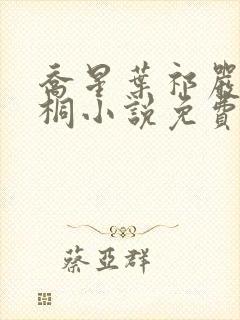 喬星葉祁嚴
桐小說免費
蔡亞群